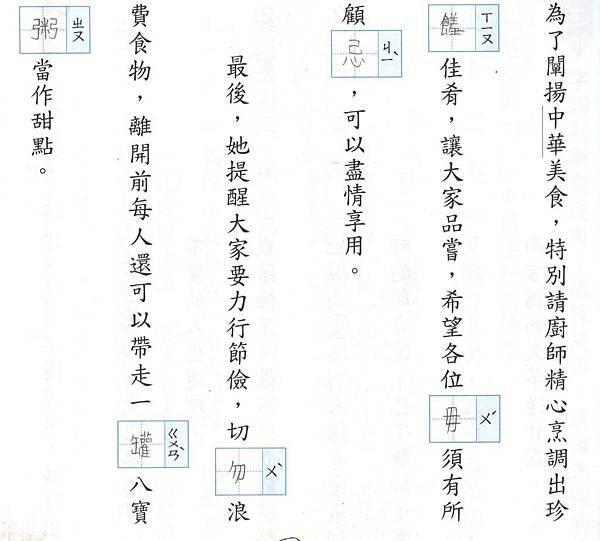 為了闡揚中華美食，特別請廚師精心烹調出珍
饈ㄒㄧㄡ佳肴，讓大家品嘗，希望各位毋ㄨˊ須有所
顧忌ㄐㄧˋ，可以盡情享用。
最後，她提醒大家要力行節儉，切勿ㄨˋ浪
費食物，離開前每人還可以帶走一罐ㄍㄨㄢˋ八寶
粥ㄓㄡ當作甜點。